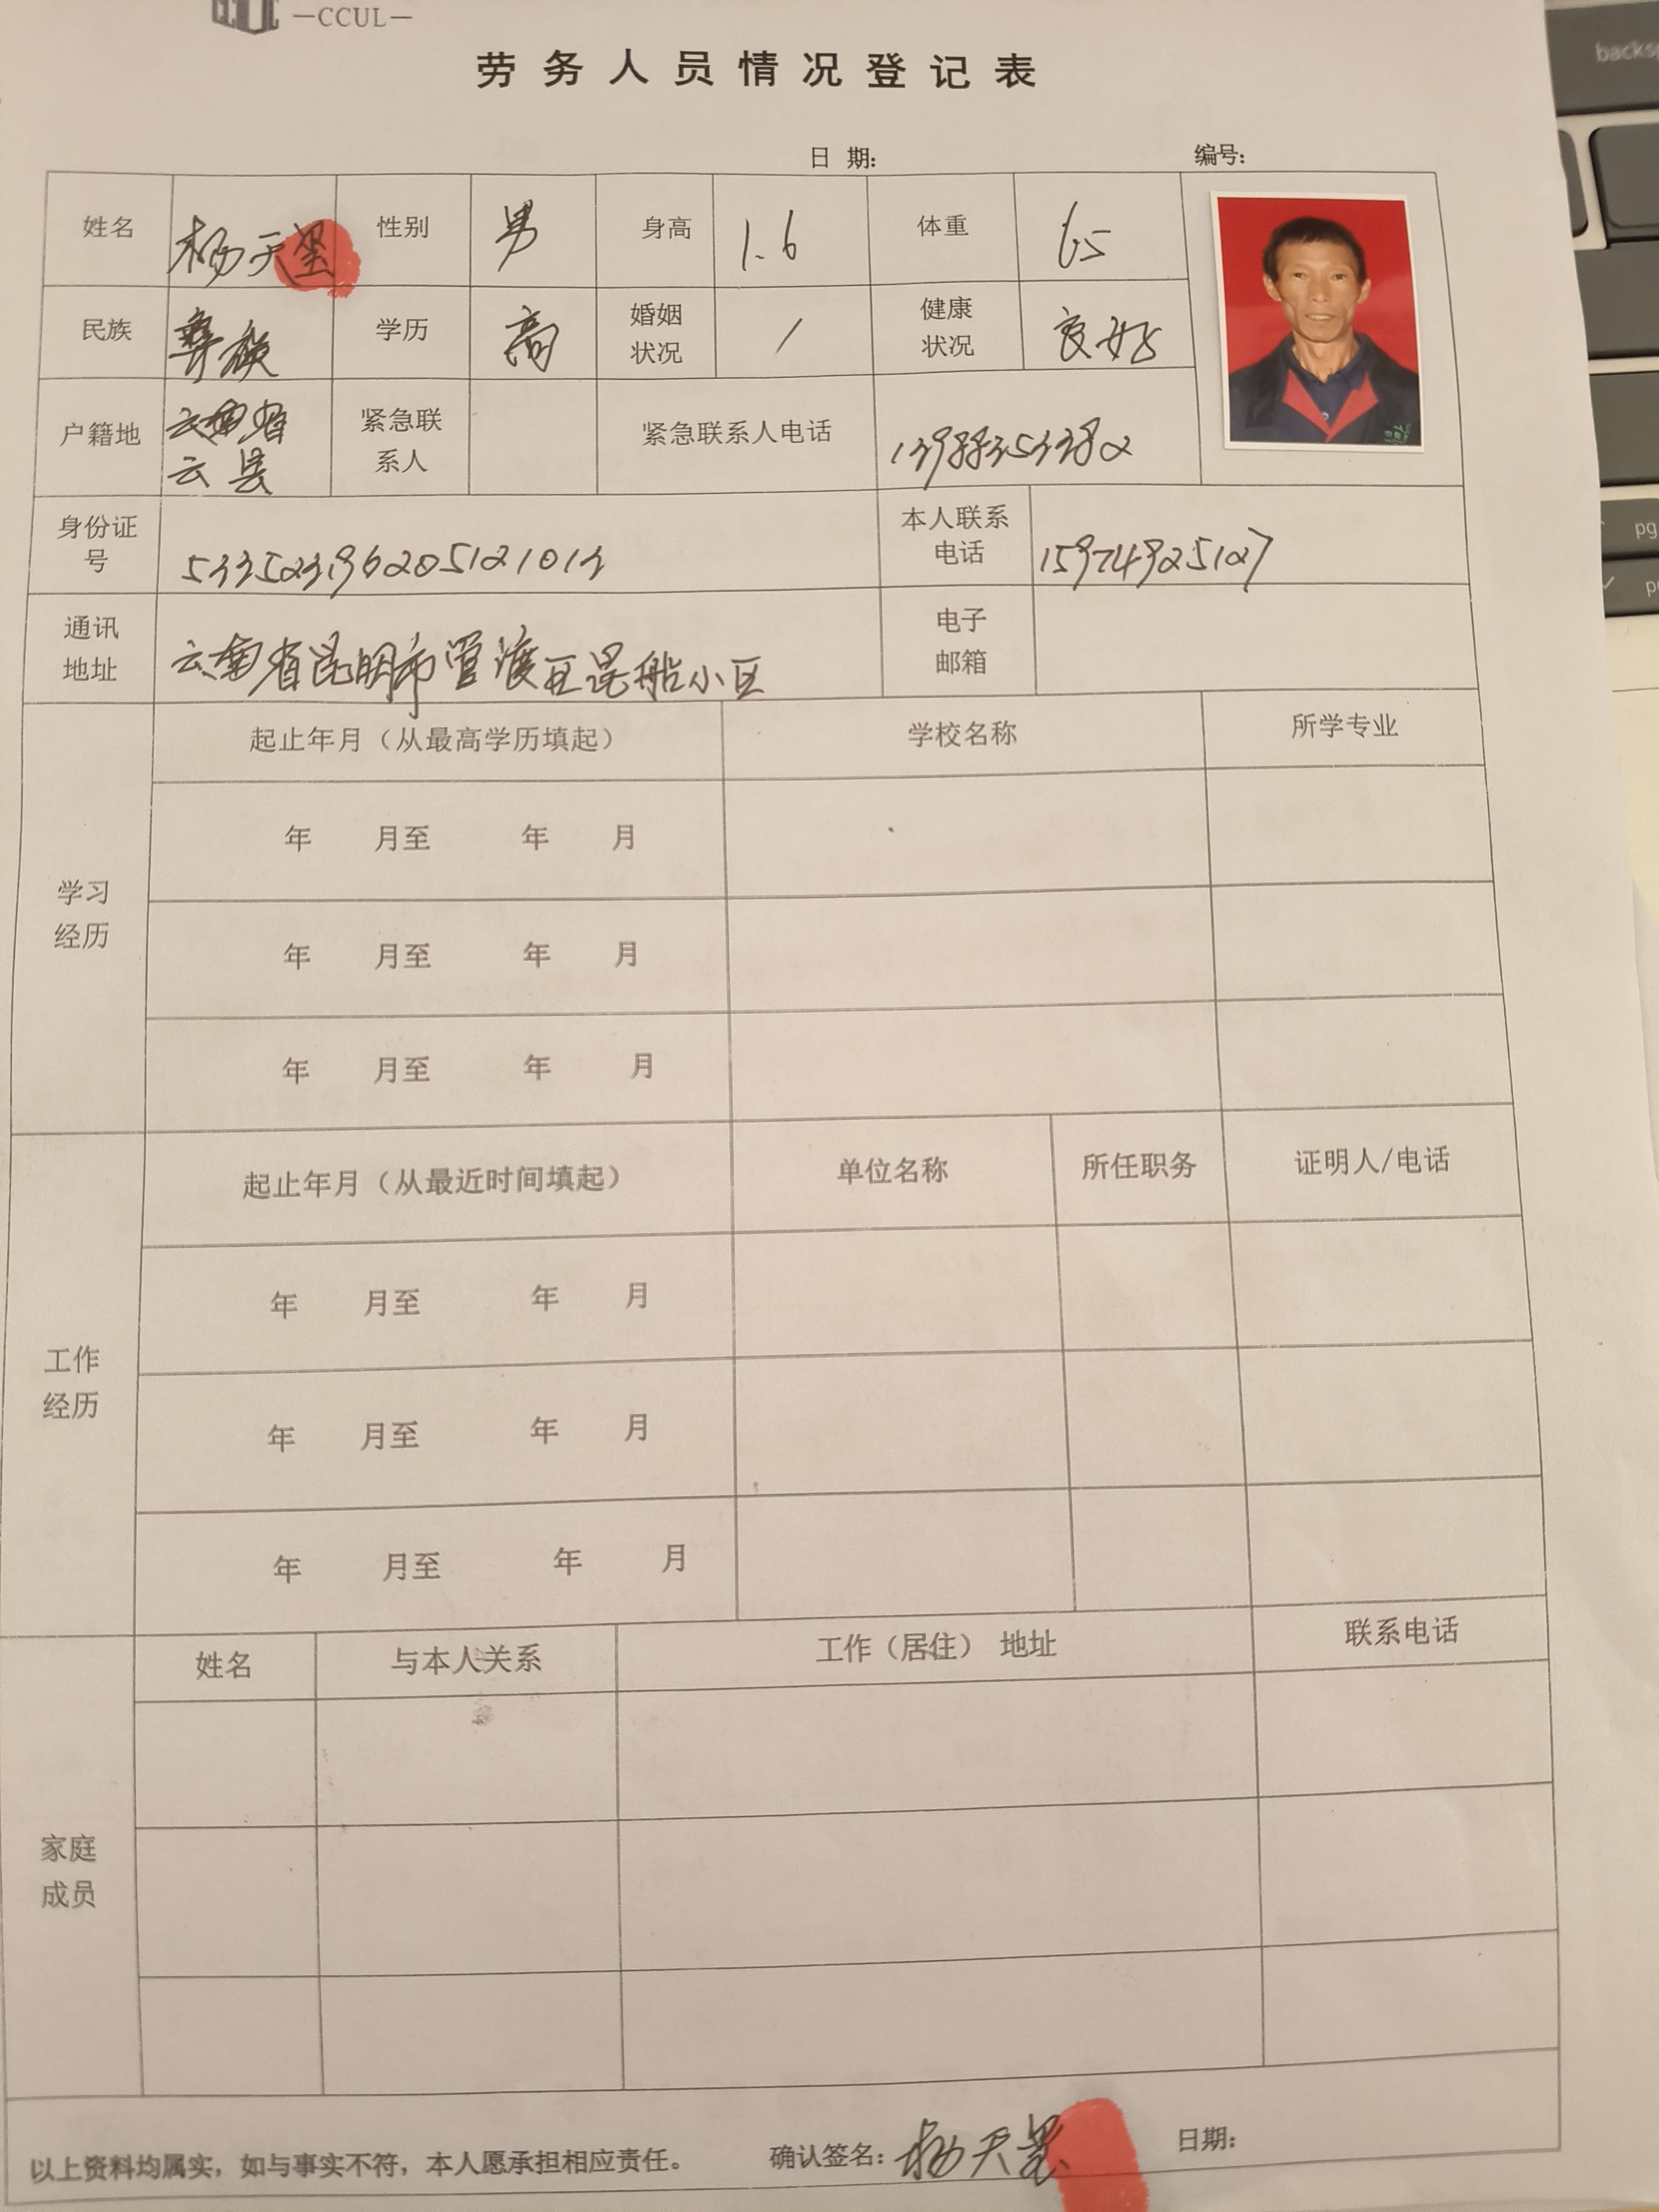 —CCUL—
劳务人员情况登记表
日 期: 编号:
姓名 杨天 性别 男 身高 1.6 体重 65
民族 彝族 学历 高 婚姻状况 / 健康状况 良好
户籍地 云南省云县 紧急联系人 紧急联系人电话
身份证号 533523196205121013 本人联系电话 15974925127
通讯地址 云南省昆明市官渡区昆船小区 电子邮箱
学习经历
起止年月（从最高学历填起） 学校名称 所学专业
年 月至 年 月
年 月至 年 月
年 月至 年 月
工作经历
起止年月（从最近时间填起） 单位名称 所任职务 证明人/电话
年 月至 年 月
年 月至 年 月
年 月至 年 月
家庭成员
姓名 与本人关系 工作（居住） 地址 联系电话
以上资料均属实，如与事实不符，本人愿承担相应责任。 确认签名: 杨天 日期:
backsp
pg